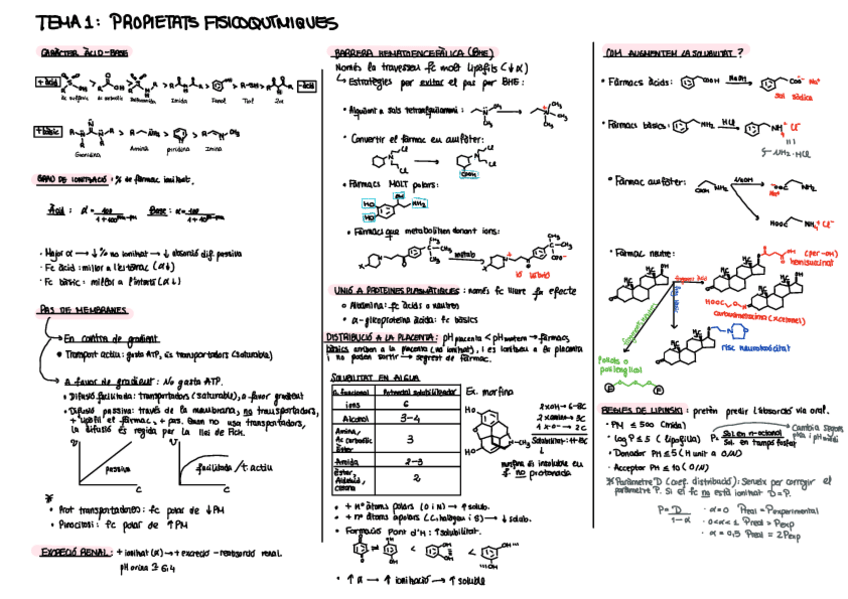 TEMA 1: PROPIETATS FISICOQUÍMIQUES
CARÀCTER ÀCID-BASE
+ àcid
-àcid
Ac. sulfònic Ac. carboxílic Sulfonamida Imida Fenol Tiol
+ bàsic
Guanidina Amina piridina Imina
GRAU DE IONITZACIÓ: % de fàrmac ionitzat.
Àcid: α =
Base: α =
· Major α → ↓ % no ionitzat → ↓ absorció dif. passiva
· Fc àcid: millor a l'estómac (α↓)
· Fc bàsic: millor a l'intestí (α↓)
PAS DE MEMBRANES
En contra de gradient
• Transport actiu: gasta ATP, és transportadors (saturable)
A favor de gradient: No gasta ATP.
• Difusió facilitada: transportadors (saturable), a favor gradient
• Difusió passiva: través de la membrana, no transportadors,
+ lipòfil el fàrmac, + pas. Quan no usa transportadors,
la difusió és regida per la llei de Fick.
V
passiva
C
V
facilitada / t. actiu
C
• Prot transportadores: fc polar de ↓PM
• Pinocitosi: fc polar de ↑PM
EXCRECIÓ RENAL: + ionitzat (α) → + excreció - reabsorció renal.
pH orina ≥ 6,4
BARRERA HEMATOENCEFÀLICA (BHE)
Només la travessen fc molt lipòfils (↓α)
↳ Estratègies per evitar el pas per BHE:
• Alquilant a sals tetraalquilamoni:
• Convertir el fàrmac en amfòter:
COOH
• Fàrmacs MOLT polars:
HO
HO
OH
NH₂
• Fàrmacs que metabolitzen donant ions:
metab
UNIÓ A PROTEÏNES PLASMÀTIQUES: només fc lliure fa efecte
o Albúmina: fc àcids o neutres
• α-glicoproteïna àcida: fc bàsics
DISTRIBUCIÓ A LA PLACENTA: pH placenta < pH materna → fàrmacs
bàsics entren a la placenta (no ionitzat), i es ionitzen a la placenta
i no poden sortir → segrest de fàrmac.
SOLUBILITAT EN AIGUA
G. funcional Potencial solubilitzador
ions 6
Alcohol 3-4
Amina, Ac. carboxílic Èster 3
Amida 2-3
Èter, Aldehid, cetona 2
Ex. morfina
HO
HO
N-CH₃
2 x OH → 6-8C
1 x -O- → 2C
morfina és insoluble en
no protonada
• + nº àtoms polars (O i N) → ↑ solub.
• + nº àtoms apolars (C, halogen i S) → ↓ solub.
• Formació Pont d'H: ↑ solubilitat.
• ↑α → ↑ ionització → ↑ soluble
COM AUGMENTEM LA SOLUBILITAT?
• Fàrmacs àcids:
COOH NaOH COO⁻ Na⁺
sal sòdica
• Fàrmacs bàsics:
NH₂ HCl NH₃⁺ Cl⁻
NH₂·HCl
• Fàrmac amfòter:
COOH NH₂ NaOH
Na⁺ ⁻OOC NH₂
HOOC NH₃⁺ Cl⁻
• Fàrmac neutre:
(per -OH)
hemisuccinat
HOOC
carboximetoxima (x cetones)
Poliols o
polietilenglicol
REGLES DE LIPINSKI: pretén predir l'absorció via oral.
• PM ≤ 500 (mida)
• log P ≤ 5 (lipofília) P = Sol en n-octanol / Sol en tampó fosfat
• Donador PH ≤ 5 (H unit a O/N)
• Acceptor PH ≤ 10 (O/N)
※ Paràmetre D (coef. distribució): Serveix per corregir el
paràmetre P. Si el fc no està ionitzat D=P.
P = D / 1-α
· α=0 Preal = Pexperimental
· 0<α<1 Preal > Pexp
· α = 0,5 Preal = 2Pexp